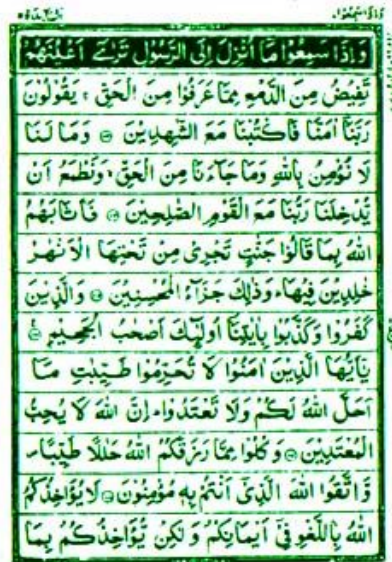 وَاِذَا سَمِعُوْا
وَاِذَا سَمِعُوْا مَآ اُنْزِلَ اِلَى الرَّسُوْلِ تَرٰٓى اَعْيُنَهُمْ
تَفِيْضُ مِنَ الدَّمْعِ مِمَّا عَرَفُوْا مِنَ الْحَقِّ ۚ يَقُوْلُوْنَ
رَبَّنَآ اٰمَنَّا فَاكْتُبْنَا مَعَ الشّٰهِدِيْنَ ۝ وَمَا لَنَا
لَا نُؤْمِنُ بِاللّٰهِ وَمَا جَآءَنَا مِنَ الْحَقِّ ۙ وَنَطْمَعُ اَنْ
يُّدْخِلَنَا رَبُّنَا مَعَ الْقَوْمِ الصّٰلِحِيْنَ ۝ فَاَثَابَهُمُ
اللّٰهُ بِمَا قَالُوْا جَنّٰتٍ تَجْرِيْ مِنْ تَحْتِهَا الْاَنْهٰرُ
خٰلِدِيْنَ فِيْهَا ۭ وَذٰلِكَ جَزَآءُ الْمُحْسِنِيْنَ ۝ وَالَّذِيْنَ
كَفَرُوْا وَكَذَّبُوْا بِاٰيٰتِنَآ اُولٰٓئِكَ اَصْحٰبُ الْجَحِيْمِ ۝
يٰٓاَيُّهَا الَّذِيْنَ اٰمَنُوْا لَا تُحَرِّمُوْا طَيِّبٰتِ مَآ
اَحَلَّ اللّٰهُ لَكُمْ وَلَا تَعْتَدُوْا ۭ اِنَّ اللّٰهَ لَا يُحِبُّ
الْمُعْتَدِيْنَ ۝ وَكُلُوْا مِمَّا رَزَقَكُمُ اللّٰهُ حَلٰلًا طَيِّبًا ۠
وَّاتَّقُوا اللّٰهَ الَّذِيْٓ اَنْتُمْ بِهٖ مُؤْمِنُوْنَ ۝ لَا يُؤَاخِذُكُمُ
اللّٰهُ بِاللَّغْوِ فِيْٓ اَيْمَانِكُمْ وَلٰكِنْ يُّؤَاخِذُكُمْ بِمَا